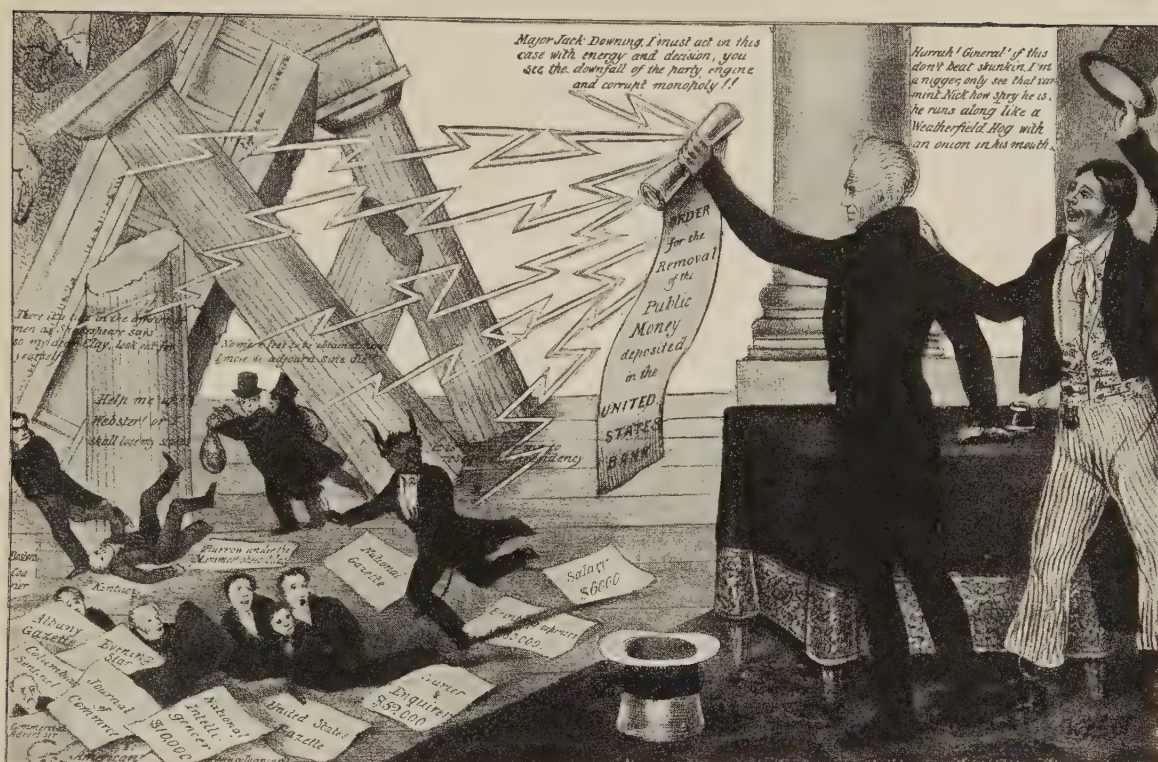 Major Jack Downing, I must act in this
case with energy and decision, you
see the downfall of the party engine
and corrupt monopoly!!
Hurrah! General! if this
don't beat skunkin, I'm
a nigger, only see that var-
mint Nick how spry he is,
he runs along like a
Weatherfield Hog with
an onion in his mouth.
ORDER
for the
Removal
of the
Public
Money
deposited
in the
UNITED
STATES
BANK
There is a tide in the affairs of
men as Shakespeare says
so my dear Clay, look out for
yourself
No more fees to be obtained here
I move we adjourn sine die
Help me up
Webster! or
shall lose my
Salary
$6000
National
Gazette
Expenses
Albany
Gazette
Evening
Star
Columbian
Journal
of
Commerce
National
Intelli-
gencer
$10000
United States
Gazette
Courier
&
Enquirer
$52000
Commercial
American